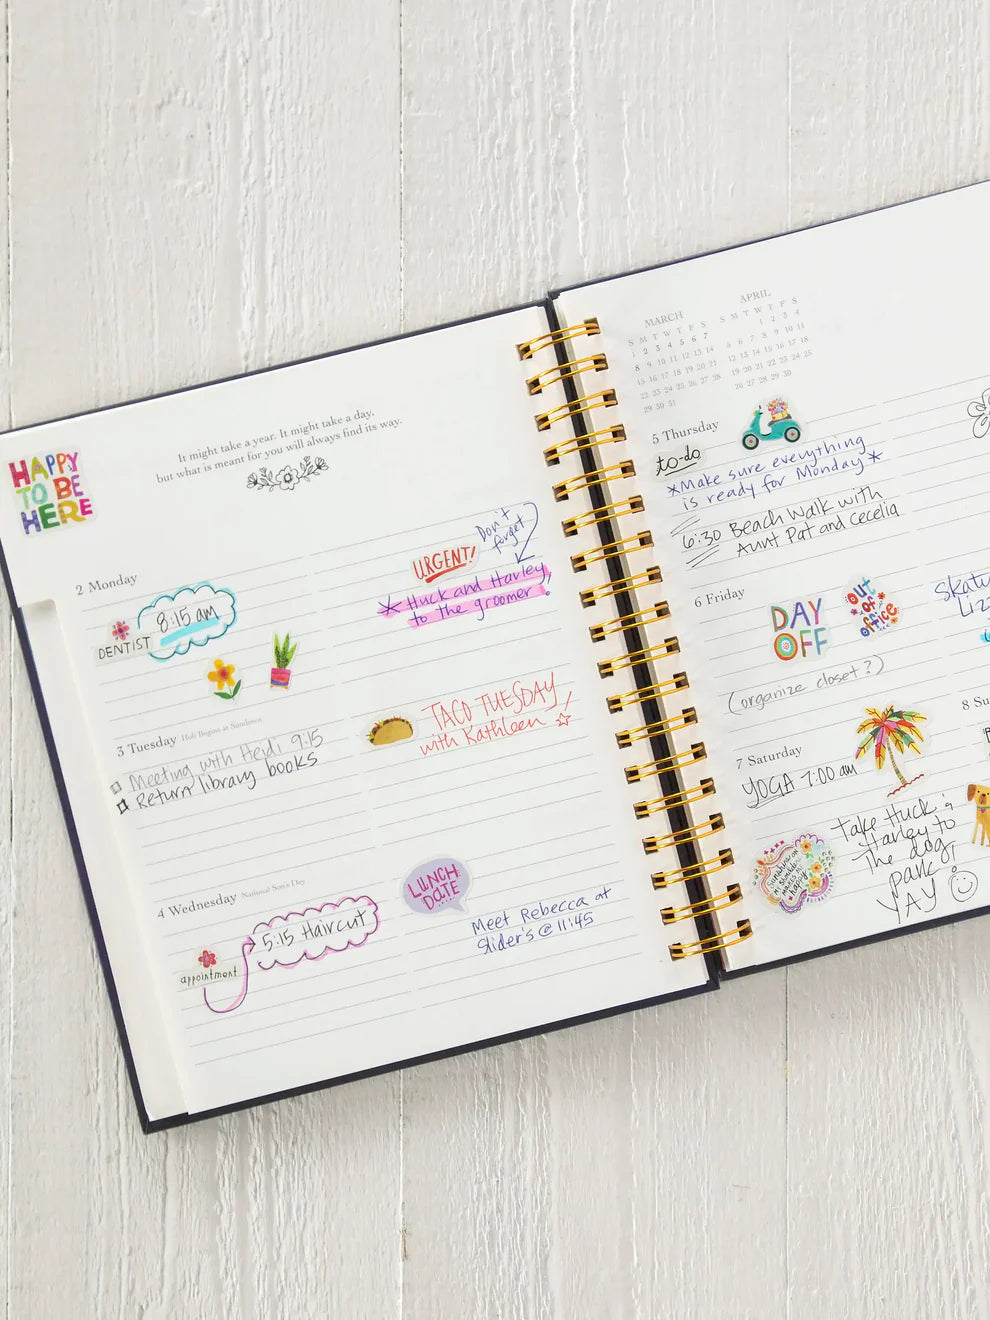 HAPPY
TO BE
HERE
It might take a year. It might take a day,
but what is meant for you will always find its way.
2 Monday
8:15 am
DENTIST
URGENT!
Don't
forget
* Huck and Harley,
to the groomer!
3 Tuesday Holi Begins at Sundown
Meeting with Heidi 9:15
Return library books
TACO TUESDAY
with Kathleen
4 Wednesday National Son's Day
5:15 Haircut
appointment
LUNCH
DATE
Meet Rebecca at
Slider's @ 11:45
MARCH
S M T W T F S
1 2 3 4 5 6 7
8 9 10 11 12 13 14
15 16 17 18 19 20 21
22 23 24 25 26 27 28
29 30 31
APRIL
S M T W T F S
1 2 3 4
5 6 7 8 9 10 11
12 13 14 15 16 17 18
19 20 21 22 23 24 25
26 27 28 29 30
5 Thursday
to-do
*Make sure everything
is ready for Monday*
6:30 Beach Walk with
Aunt Pat and Cecelia
6 Friday
DAY
OFF
out
of
office
(organize closet?)
7 Saturday
YOGA 7:00 am
Take Huck &
Harley to
the dog
park!
YAY
8 Su